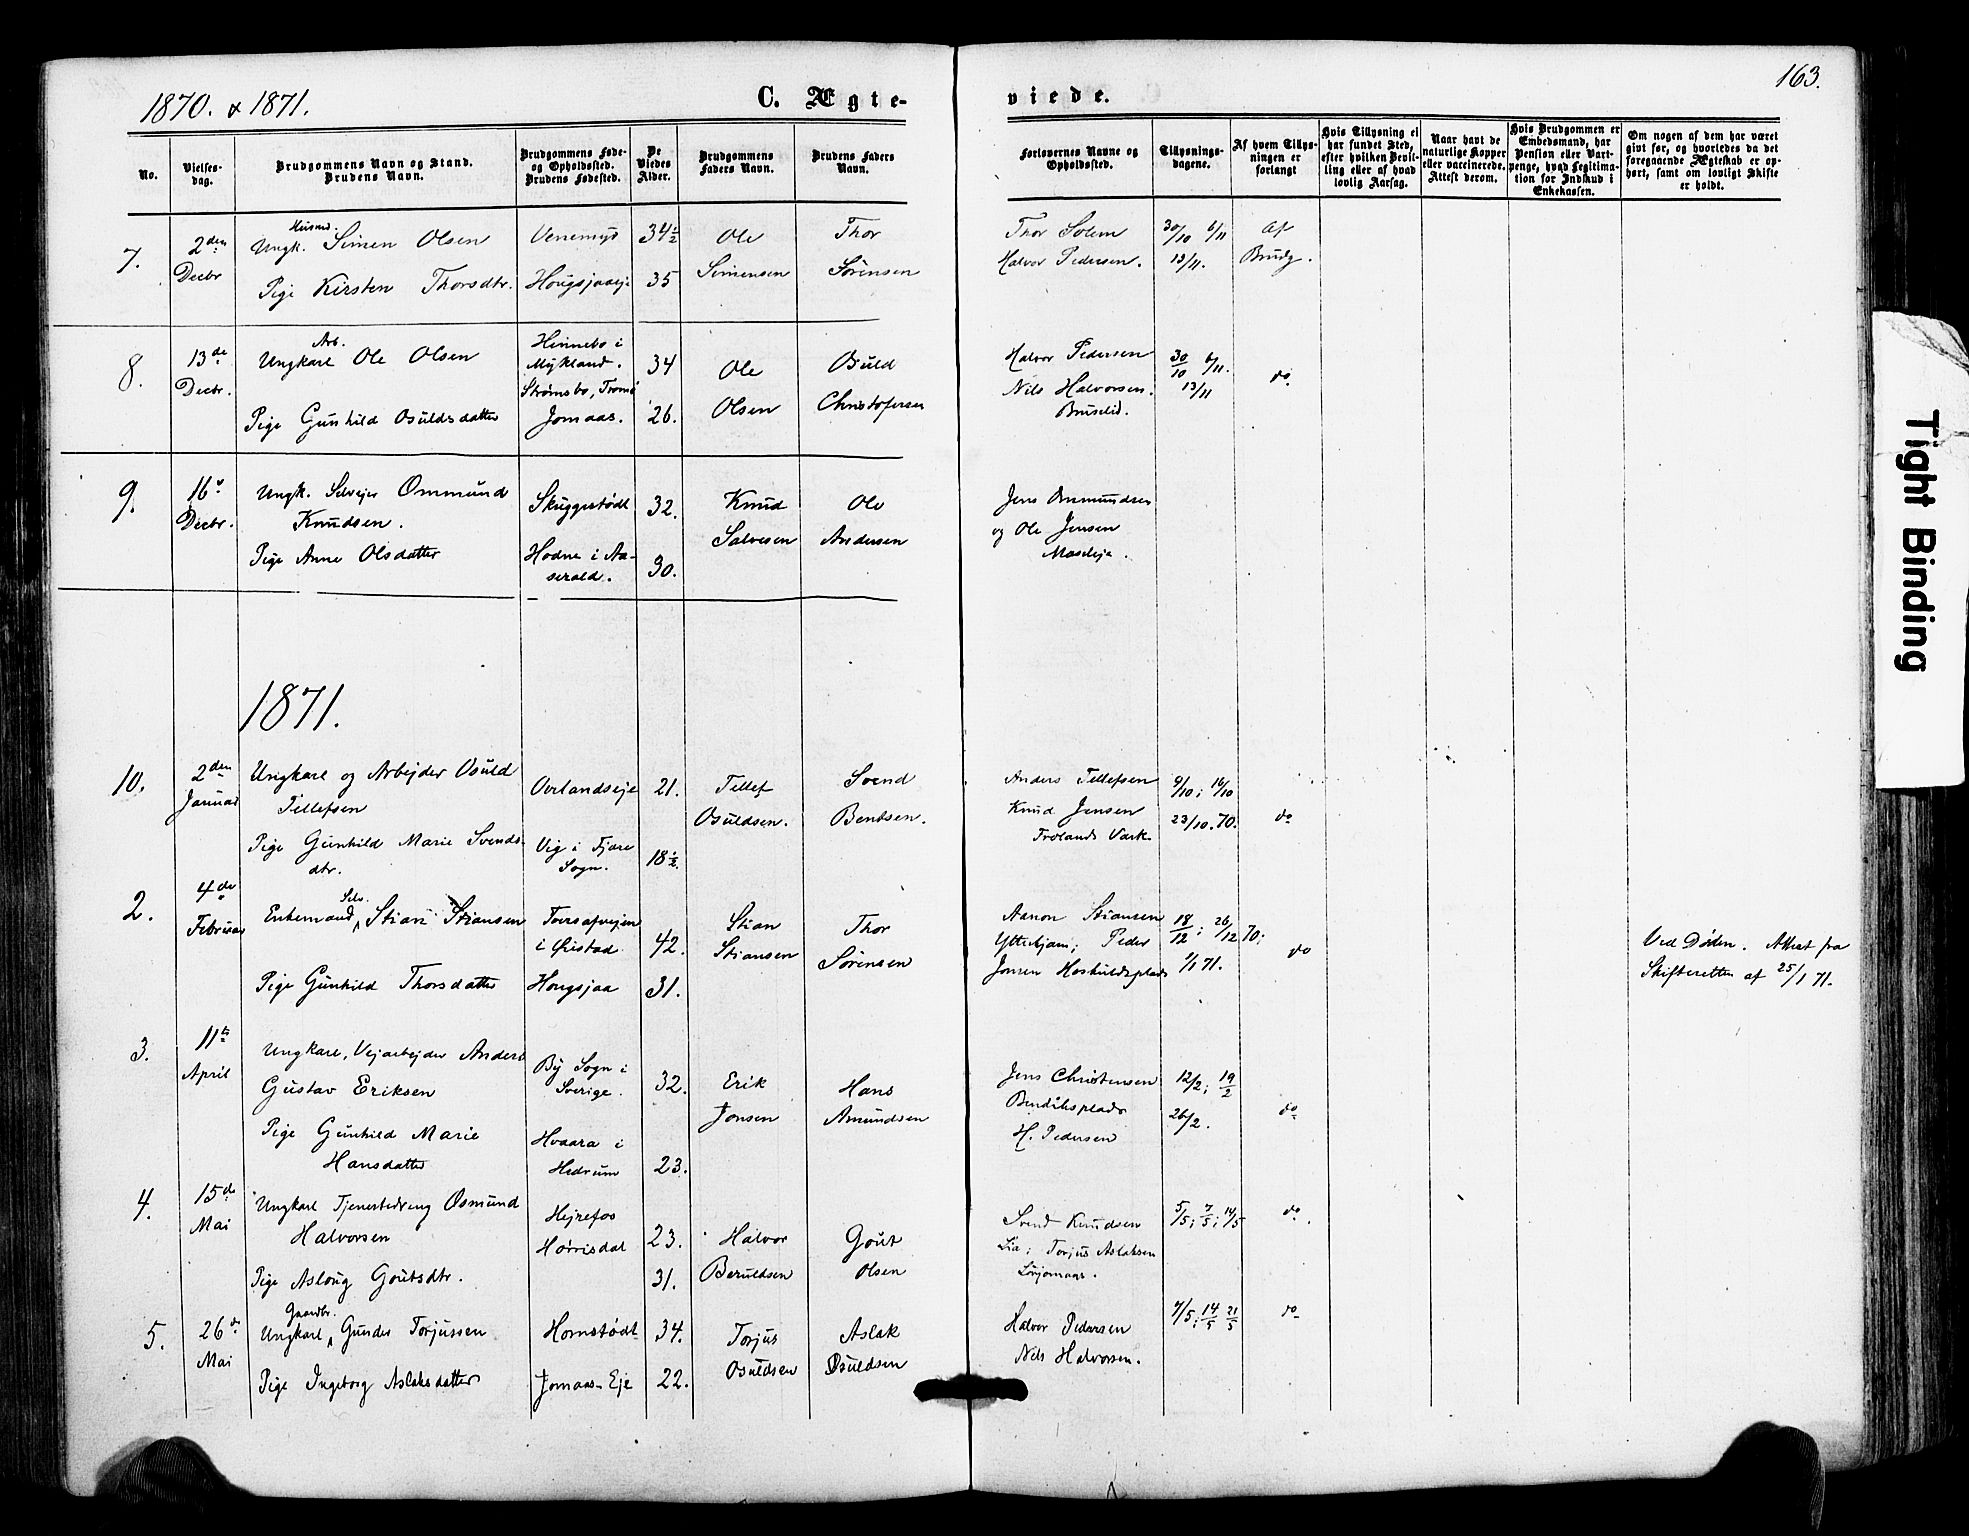 1870. & 1871.
C. Ægte-
viede.
163.
No.
Vielses-
dag.
Brudgommens Navn og Stand.
Brudens Navn.
Brudgommens Føde-
og Opholdssted.
Brudens Fødested.
De
Viedes
Alder.
Brudgommens
Faders Navn.
Brudens Faders
Navn.
Forlovernes Navne og
Opholdssted.
Tillysnings-
dagene.
Af hvem Tillys-
ningen er
forlangt
Hvis Tillysning ei
har fundet Sted,
efter hvilken Bevil-
ling eller af hvad
lovlig Aarsag.
Naar havt de
naturlige Kopper
eller vaccinerede.
Attest derom.
Hvis Brudgommen er
Embedsmand, har
Pension eller Vart-
penge, hvad Legitima-
tion for Indskud i
Enkekassen.
Om nogen af dem har været
givt før, og hvorledes da det
foregaaende Ægteskab er op-
hørt, samt om lovligt Skifte
er holdt.
7.
2den
Decbr
Husmd.
Ungk. Simen Olsen
Pige Kirsten Thorsdtr.
Venemyr
Hougsjaaeje
34½
35
Ole
Simensen
Thor
Sørensen
Thor Solem
Halvor Pedersen.
30/10 6/11
13/11.
af
Brudg.
8.
13de
Decbr.
Arb.
Ungkarl Ole Olsen
Pige Gunhild Osuldsdatter
Hinnebo i
Mykland.
Strømsbo, Tromø
Jomaas.
34
26.
Ole
Olsen
Osuld
Christofersen
Halvor Pedersen
Nils Halvorsen.
Buselid.
30/10 6/11.
13/11
do
9.
16de
Decbr.
Ungk. Selvejer Ommund
Knudsen.
Pige Anne Olsdatter
Skuggestødt
Hodne i Aa-
serald.
32.
30.
Knud
Salvesen
Ole
Andersen
Jens Ommundsen
og Ole Jensen
Maseleja.
1871.
10.
2den
Januar
Ungkarl og Arbejder Osuld
Tellefsen
Pige Gunhild Marie Svends-
dtr.
Overlandseje
Vig i Fjære
Sogn.
21.
18½.
Tellef
Osuldsen.
Svend
Bentsen.
Anders Tellefsen
Knud Jensen
Frolands Værk
9/10; 16/10
23/10.70.
do
2.
4de
Februar
Selv.
Enkemand Stian Stiansen
Pige Gunhild Thorsdatter
i Øiestad
Hougsjaa
42.
31.
Stian
Stiansen
Thor
Sørensen
Aanon Stiansen
Peder
Jensen Hoskuldsplads
18/12; 26/12 70;
1/1 71.
do
Ved Døden. Attest fra
Skifteretten af 25/1 71.
3.
11te
April
Ungkarl, Vejarbejder Anders
Gustav Eriksen
Pige Gunhild Marie
Hansdatter
By Sogn i
Sverige.
Hvaara i
Hedrum
32.
23.
Erik
Jonsen
Hans
Amundsen
Jens Christensen
Bendiksplads
H. Pedersen
12/2; 19/2
26/2.
do
4.
15de
Mai
Ungkarl Tjenestedreng Osmund
Halvorsen
Pige Aslaug Goutsdtr.
Hejrefos
Hørrisdal
23.
31.
Halvor
Beruldsen
Gout
Olsen
Svend Knudsen
Lia; Torjus Aslaksen
5/5; 7/5; 14/5
do.
5.
26de
Mai
Gaardbr.
Ungkarl Gunder Torjussen
Pige Ingeborg Aslaksdatter
Hornstødt
Jomaas-Eje
34.
22.
Torjus
Osuldsen
Aslak
Osuldsen
Halvor Pedersen
Nils Halvorsen.
7/5; 14/5 21/5
do
Tight Binding